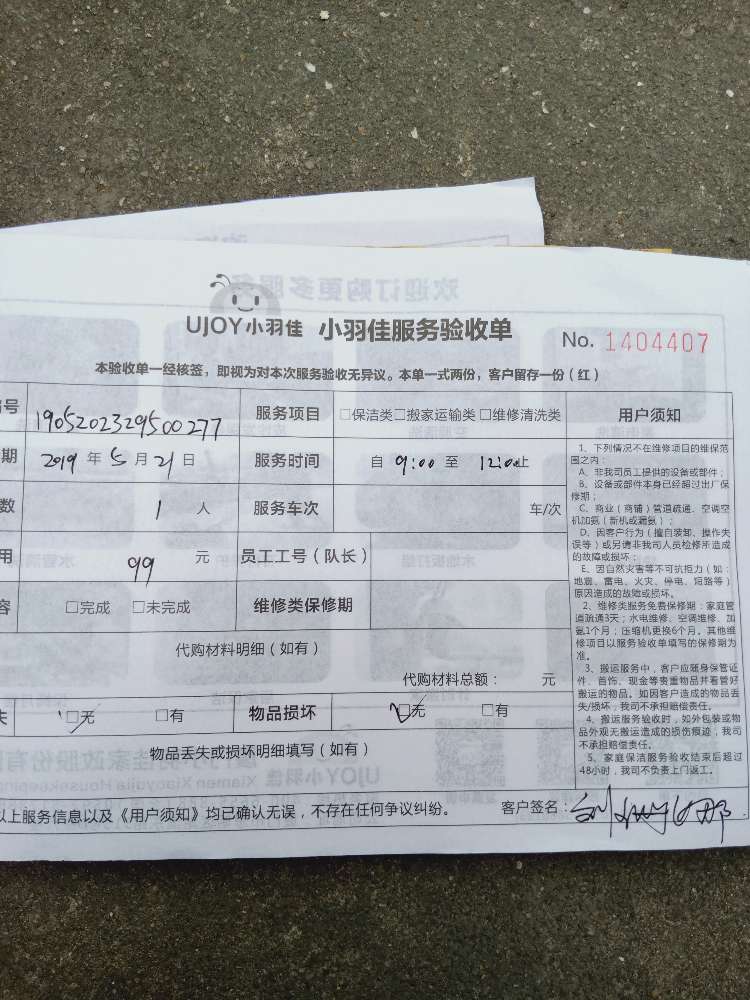 UJOY小羽佳 小羽佳服务验收单 No. 1404407
本验收单一经核签，即视为对本次服务验收无异议。本单一式两份，客户留存一份（红）
号 1905202329500277 服务项目 □保洁类□搬家运输类□维修清洗类 用户须知
期 2019 年 5 月 21 日 服务时间 自 9:00 至 12:00止
数 1 人 服务车次 车/次
用 99 元 员工工号（队长）
容 □完成 □未完成 维修类保修期
代购材料明细（如有）
代购材料总额： 元
失 □无 □有 物品损坏 □无 □有
物品丢失或损坏明细填写（如有）
以上服务信息以及《用户须知》均已确认无误，不存在任何争议纠纷。 客户签名：
1、下列情况不在维修项目的维保范
围之内：
A、非我司员工提供的设备或部件；
B、设备或部件本身已经超过出厂保
修期；
C、商业（商铺）管道疏通、空调空
机加氨（新机或漏氨）；
D、因客户行为（擅自装卸、操作失
误等）或另请非我司人员检修所造成
的故障或损坏；
E、因自然灾害等不可抗拒力（如：
地震、雷电、火灾、停电、短路等）
原因造成的故障或损坏。
2、维修类服务免费保修期：家庭管
道疏通3天；水电维修、空调维修、加
氨1个月；压缩机更换6个月。其他维
修项目以服务验收单填写的保修期为
准。
3、搬运服务中，客户应随身保管证
件、首饰、现金等贵重物品并看管好
搬运的物品。如因客户造成的物品丢
失/损坏，我司不承担赔偿责任。
4、搬运服务验收时，如外包装或物
品外观无搬运造成的损伤痕迹，我司
不承担赔偿责任。
5、家庭保洁服务验收结束后超过
48小时，我司不负责上门返工。